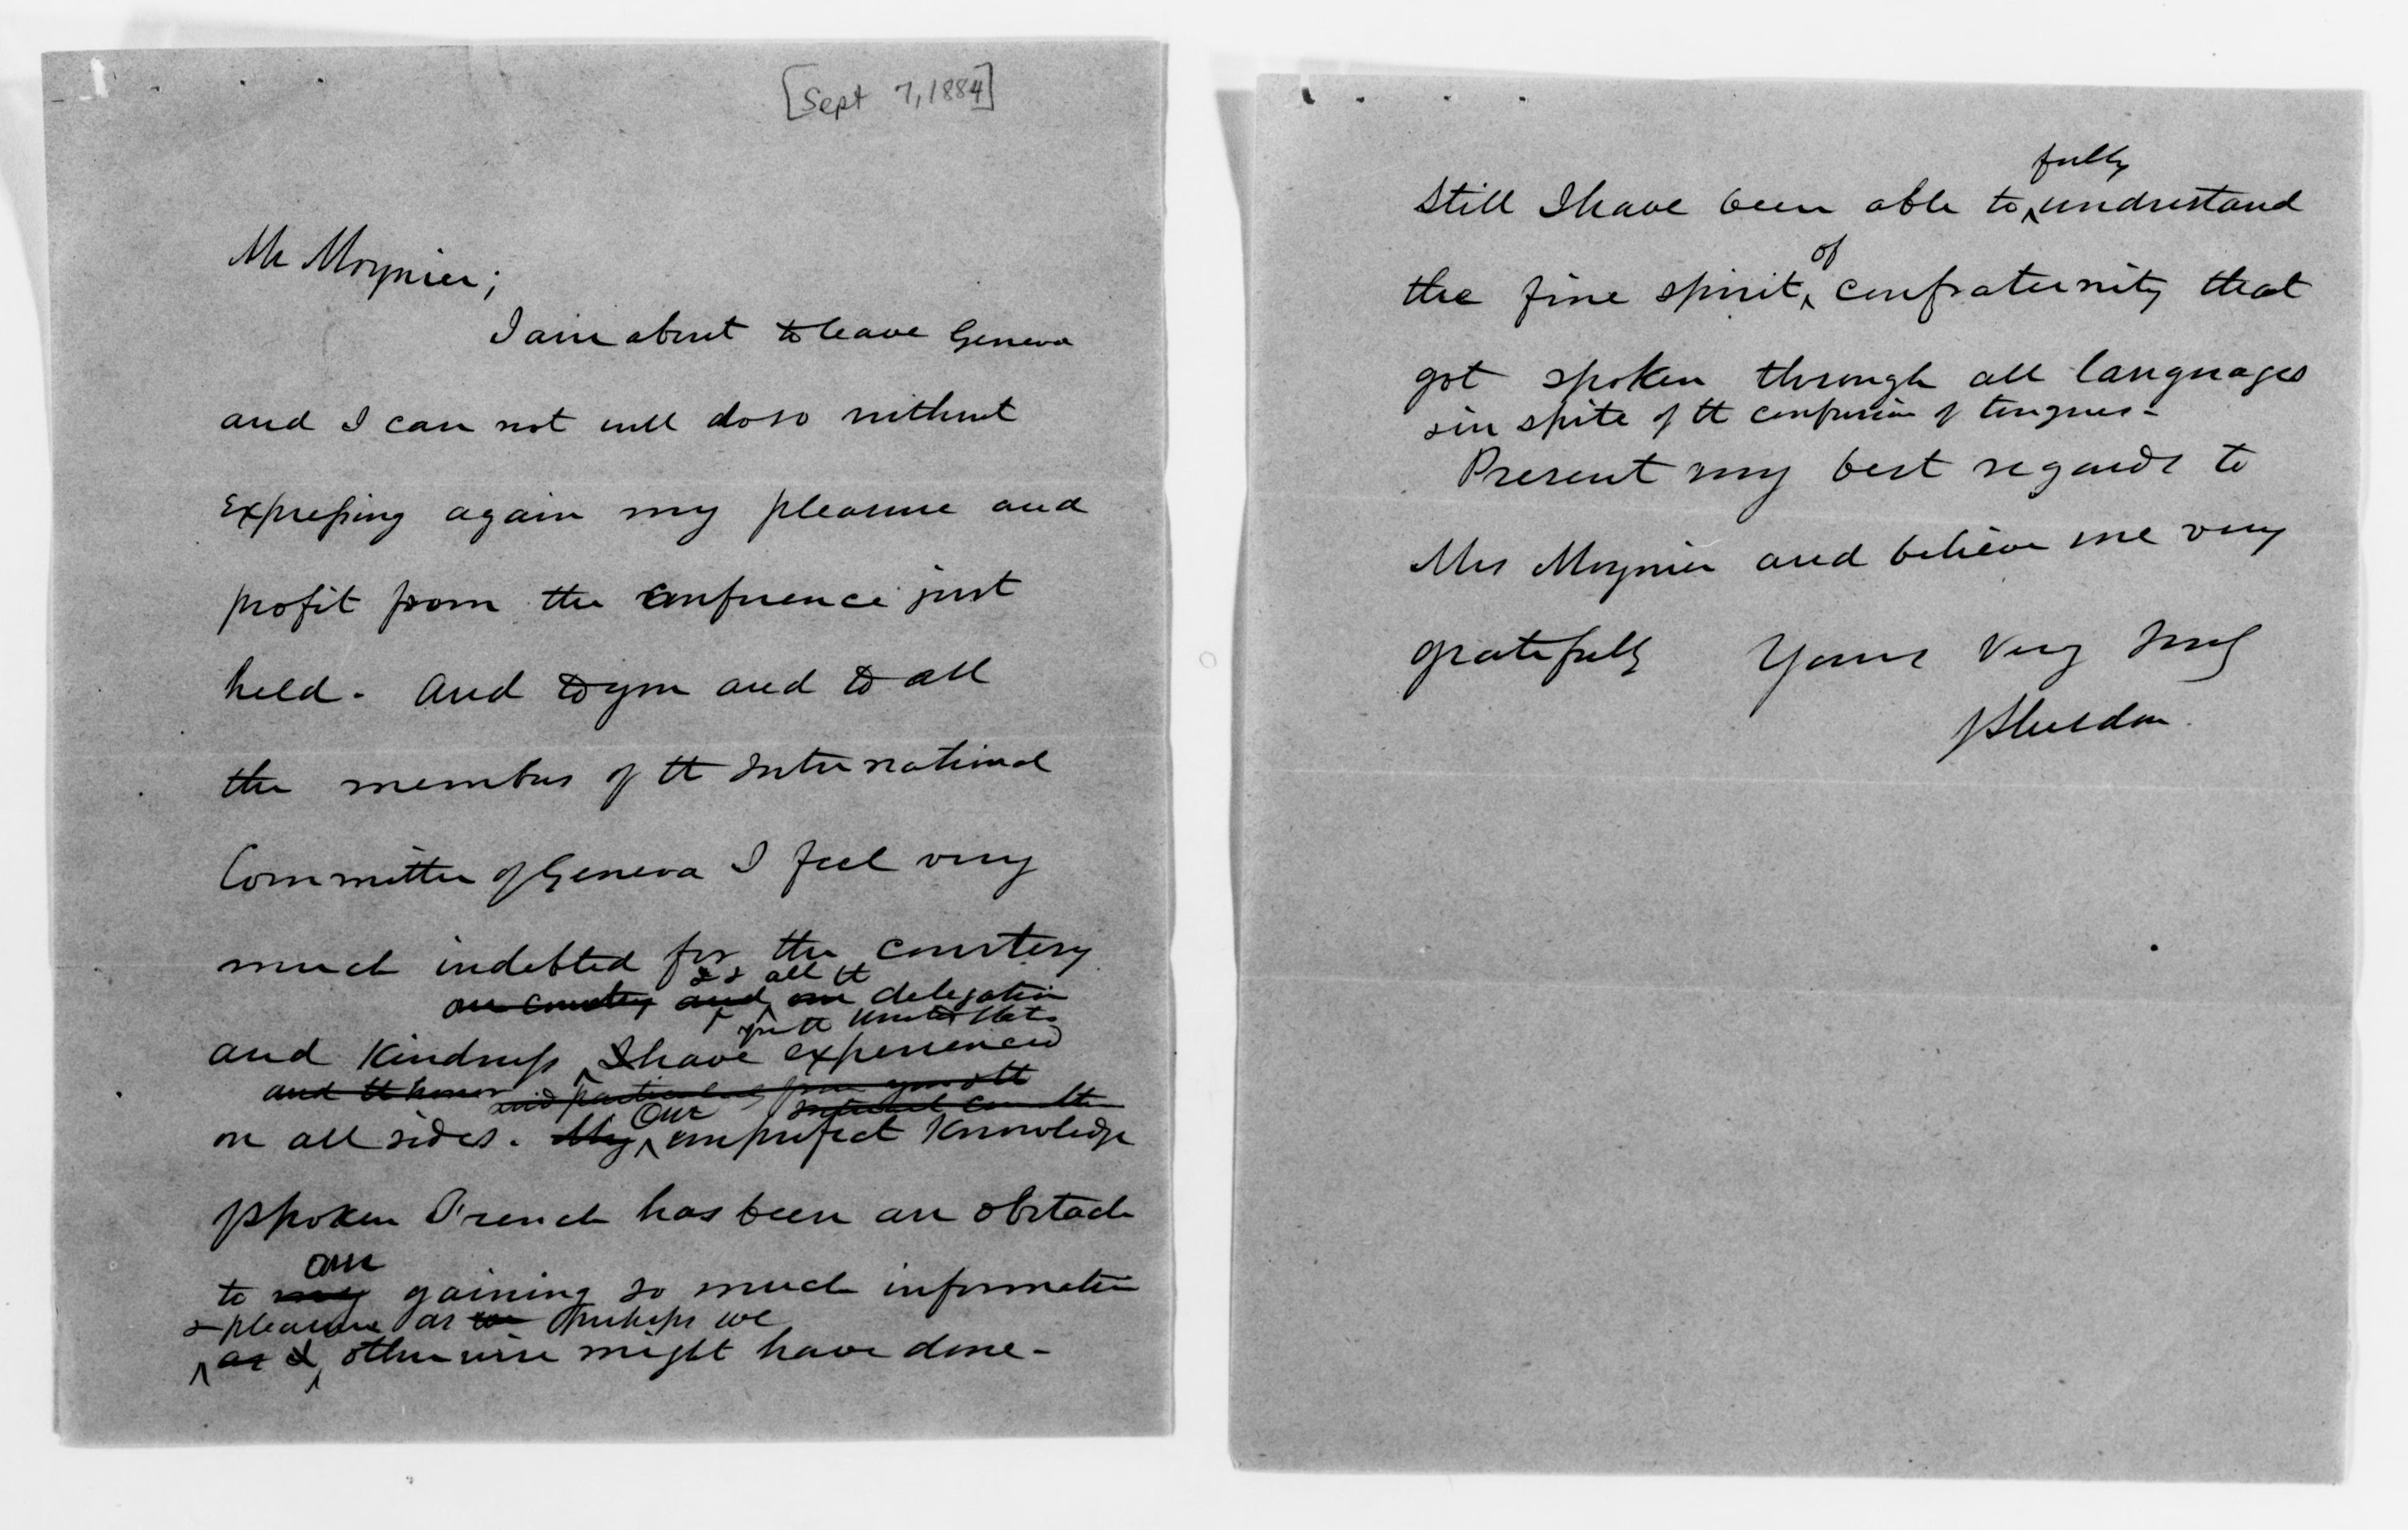 [Sept 7, 1884]
Mr Moynier;
I am about to leave Geneva
and I can not well do so without
expressing again my pleasure and
profit from the conference just
held. And to you and to all
the members of tt International
Committee of Geneva I feel very
much indebted for the courtesy
& & all tt
our country and our delegation
from tt United States
and Kindness I have experienced
and tt honor and particularly from you & tt
Our
on all sides. My imperfect Knowledge
of spoken French has been an obstacle
our
to my gaining so much information
& pleasure as we perhaps we
as I otherwise might have done -
fully
Still I have been able to understand
of
the fine spirit confraternity that
got spoken through all languages
& in spite of tt confusion of tongues -
Present my best regards to
Mrs Moynier and believe me very
gratefully Yours Very Truly
J Sheldon